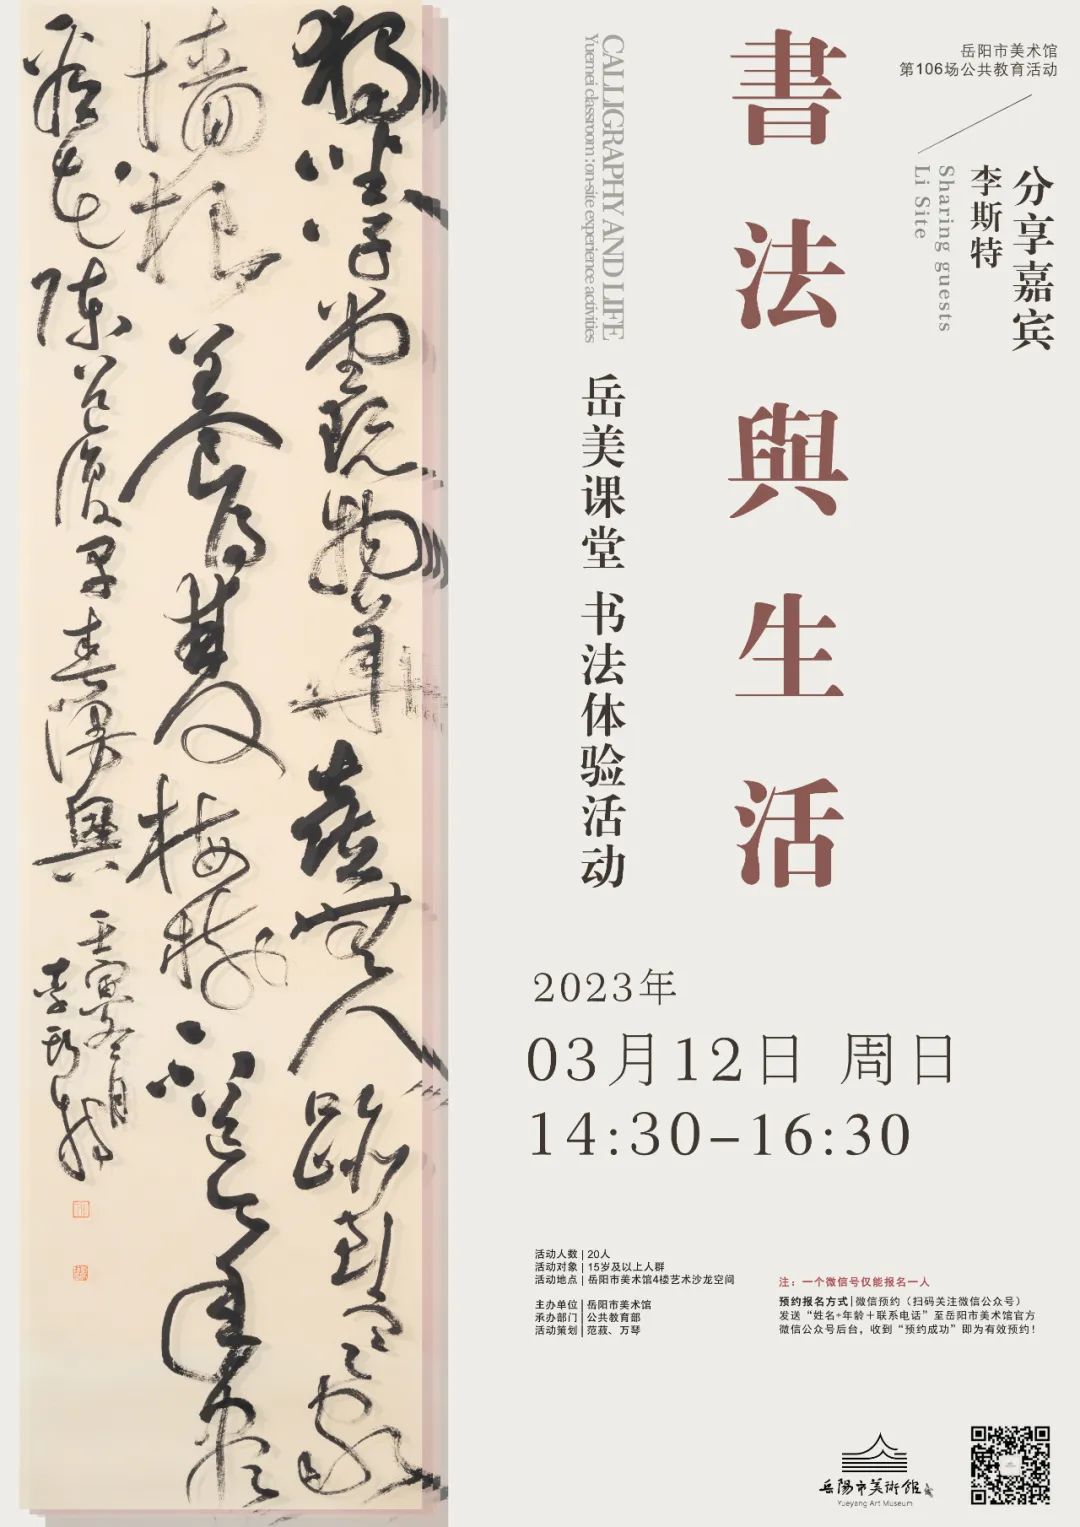 岳阳市美术馆
第106场公共教育活动
分享嘉宾
李斯特
Sharing guests
Li Site
書法與生活
CALLIGRAPHY AND LIFE
Yuemei classroom : on-site experience activities
岳美课堂 书法体验活动
2023年
03月12日 周日
14:30-16:30
活动人数 | 20人
活动对象 | 15岁及以上人群
活动地点 | 岳阳市美术馆4楼艺术沙龙空间
主办单位 | 岳阳市美术馆
承办部门 | 公共教育部
活动策划 | 范菽、万琴
注：一个微信号仅能报名一人
预约报名方式 | 微信预约（扫码关注微信公众号）
发送“姓名+年龄+联系电话”至岳阳市美术馆官方
微信公众号后台，收到“预约成功”即为有效预约！
岳陽市美術館
Yueyang Art Museum
堂玩物華喜無人跡到家
墻根養得梅樹
花陳道復早春漫興
壬寅冬月
李斯特